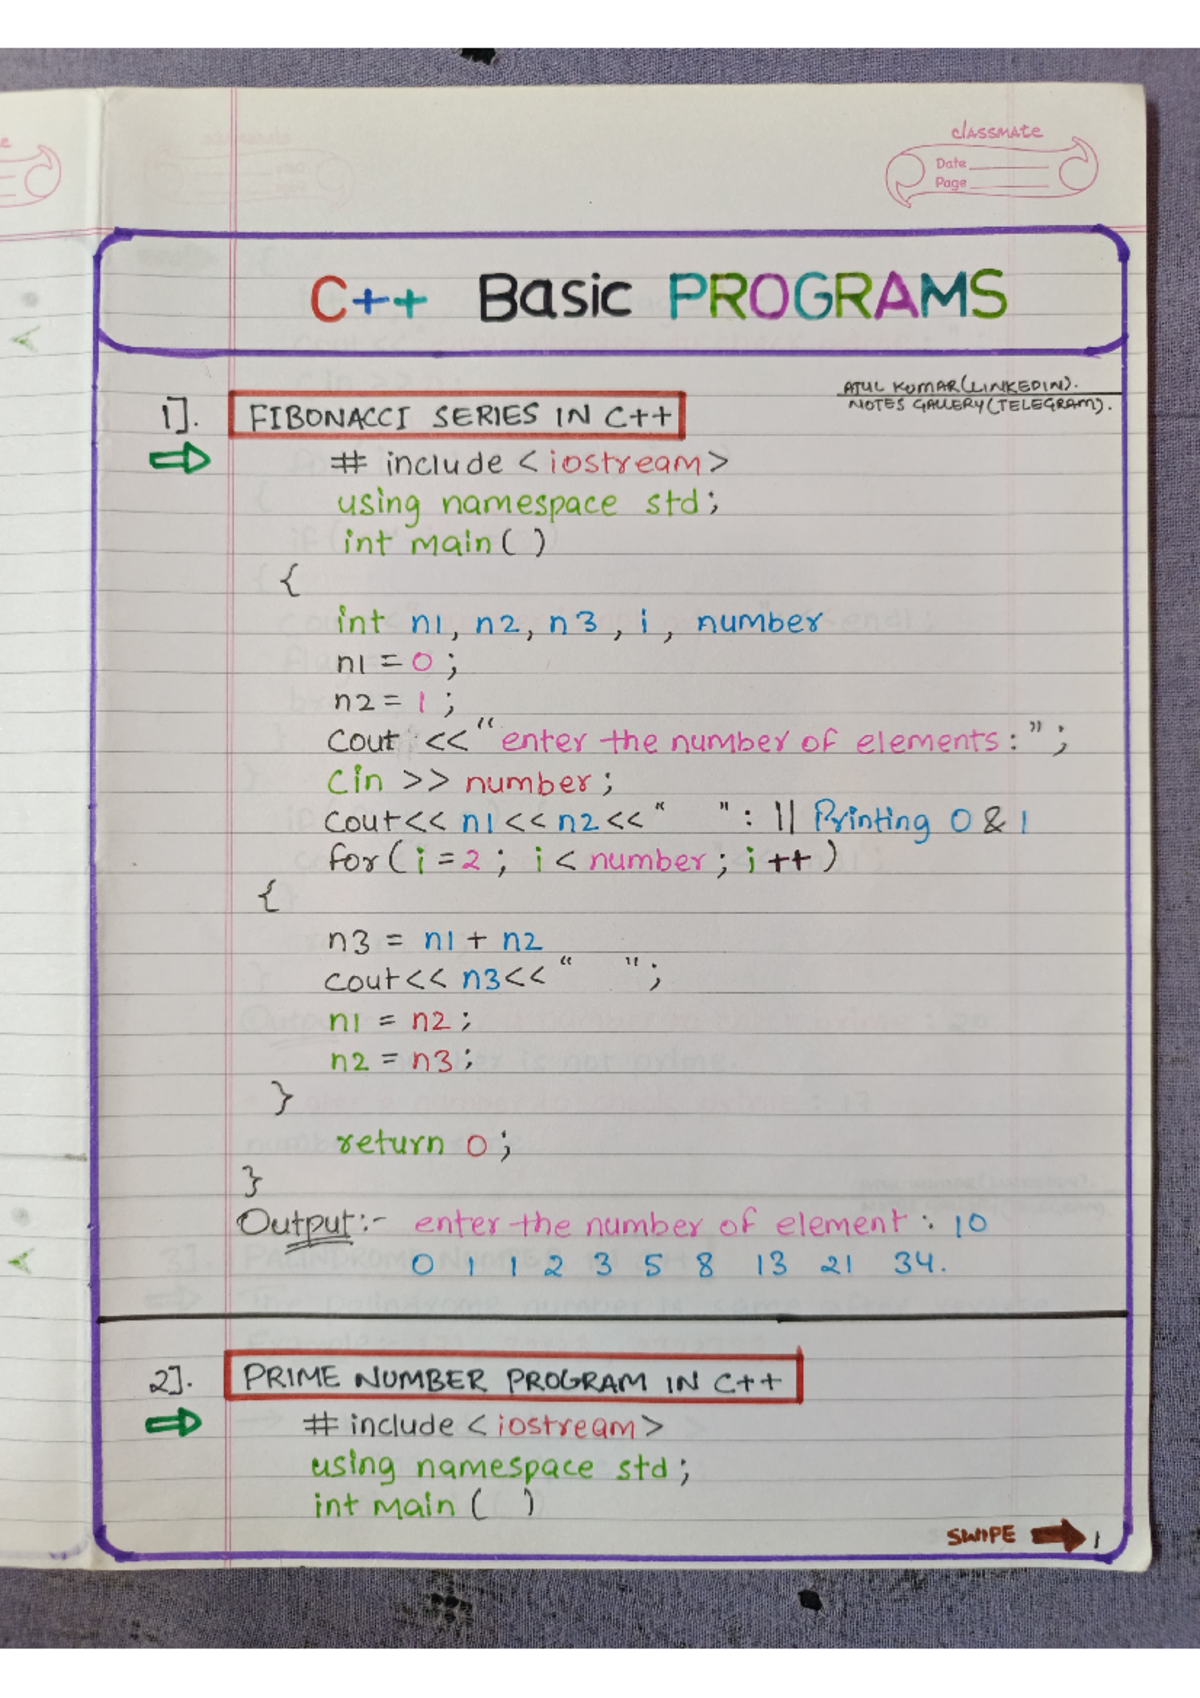 classmate
Date
Page
C++ Basic PROGRAMS
ATUL KUMAR(LINKEDIN).
NOTES GALLERY(TELEGRAM).
1]. FIBONACCI SERIES IN C++
# include <iostream>
using namespace std;
int main( )
{
int n1, n2, n3, i, number
n1 = 0;
n2 = 1;
Cout << "enter the number of elements:";
Cin >> number;
Cout<< n1<< n2<< " ": || Printing 0 & 1
for( i = 2; i < number; i ++ )
{
n3 = n1 + n2
cout<< n3<< " ";
n1 = n2;
n2 = n3;
}
return 0;
}
Output:- enter the number of element : 10
0 1 1 2 3 5 8 13 21 34.
2]. PRIME NUMBER PROGRAM IN C++
# include <iostream>
using namespace std;
int main ( )
SWIPE 1